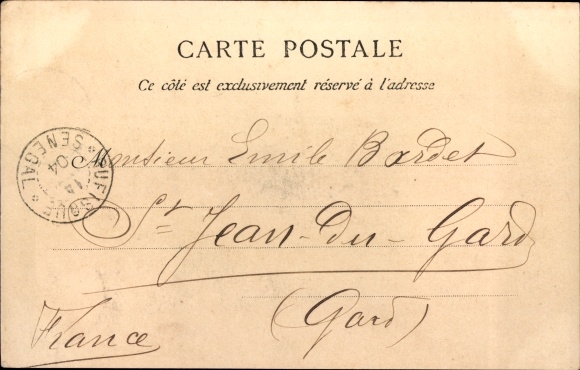 CARTE POSTALE
Ce côté est exclusivement réservé à l'adresse
RUFISQUE
14
04
* SENEGAL *
Monsieur Emile Bardet
St Jean-du-Gard
(Gard)
France